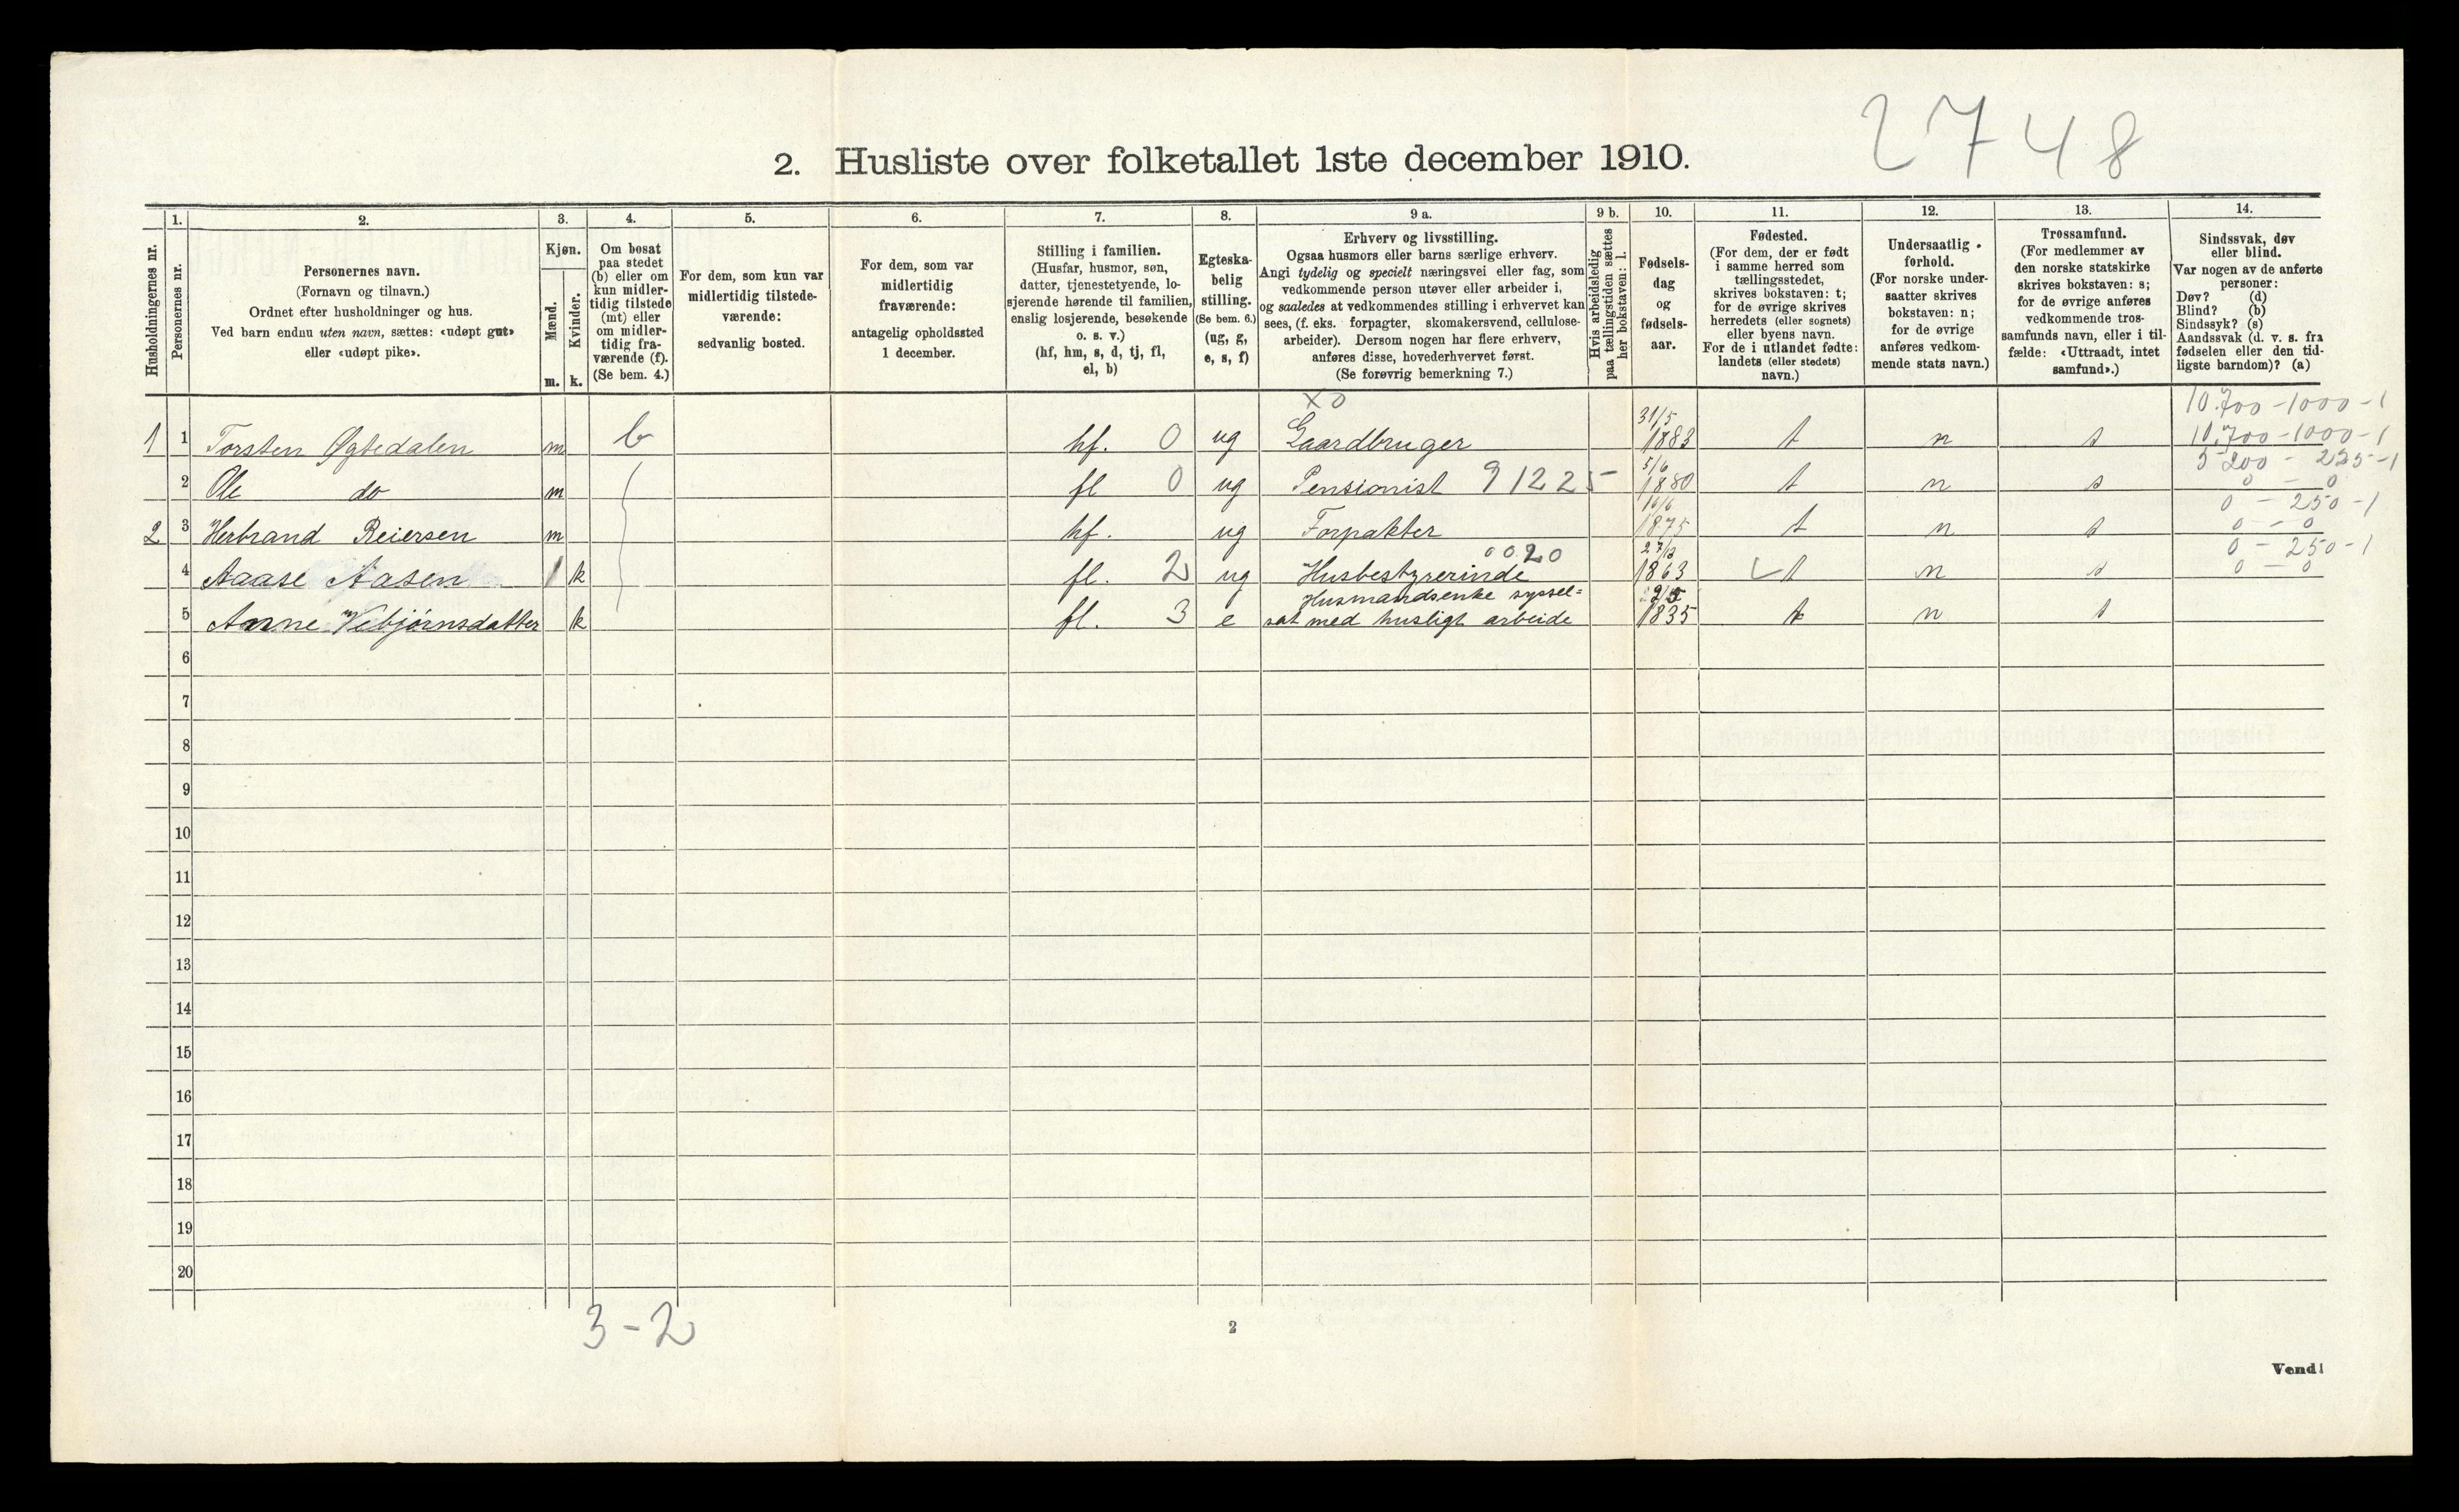 2748
2. Husliste over folketallet 1ste december 1910.
Husholdningernes nr.
1.
Personernes nr.
2.
Personernes navn.
(Fornavn og tilnavn.)
Ordnet efter husholdninger og hus.
Ved barn endnu uten navn, sættes: «udøpt gut»
eller «udøpt pike».
3.
Kjøn.
Mænd.
Kvinder.
m. k.
4.
Om bosat
paa stedet
(b) eller om
kun midler-
tidig tilstede
(mt) eller
om midler-
tidig fra-
værende (f).
(Se bem. 4.)
5.
For dem, som kun var
midlertidig tilstede-
værende:
sedvanlig bosted.
6.
For dem, som var
midlertidig
fraværende:
antagelig opholdssted
1 december.
7.
Stilling i familien.
(Husfar, husmor, søn,
datter, tjenestetyende, lo-
sjerende hørende til familien,
enslig losjerende, besøkende
o. s. v.)
(hf, hm, s, d, tj, fl,
el, b)
8.
Egteska-
belig
stilling.
(Se bem. 6.)
(ug, g,
e, s, f)
9 a.
Erhverv og livsstilling.
Ogsaa husmors eller barns særlige erhverv.
Angi tydelig og specielt næringsvei eller fag, som
vedkommende person utøver eller arbeider i,
og saaledes at vedkommendes stilling i erhvervet kan
sees, (f. eks. forpagter, skomakersvend, cellulose-
arbeider). Dersom nogen har flere erhverv,
anføres disse, hovederhvervet først.
(Se forøvrig bemerkning 7.)
9 b.
Hvis arbeidsledig
paa tællingstiden sættes
her bokstaven: l.
10.
Fødsels-
dag
og
fødsels-
aar.
11.
Fødested.
(For dem, der er født
i samme herred som
tællingsstedet,
skrives bokstaven: t;
for de øvrige skrives
herredets (eller sognets)
eller byens navn.
For de i utlandet fødte:
landets (eller stedets)
navn.)
12.
Undersaatlig
forhold.
(For norske under-
saatter skrives
bokstaven: n;
for de øvrige
anføres vedkom-
mende stats navn.)
13.
Trossamfund.
(For medlemmer av
den norske statskirke
skrives bokstaven: s;
for de øvrige anføres
vedkommende tros-
samfunds navn, eller i til-
fælde: «Uttraadt, intet
samfund».)
14.
Sindssvak, døv
eller blind.
Var nogen av de anførte
personer:
Døv? (d)
Blind? (b)
Sindssyk? (s)
Aandssvak (d. v. s. fra
fødselen eller den tid-
ligste barndom)? (a)
x0 10.700-1000-1
1 1 Torsten Øgtedalen m b hf. 0 ug Gaardbruger 31/5 1883 t n s 10.700-1000-1
5200 - 225-1
2 Ole do m fl 0 ug Pensionist 91225 5/6 1880 t n s 0 - 0
0 - 250-1
2 3 Herbrand Reiersen m hf. ug Forpakter 16/6 1875 t n s 0 - 0
0020 0 - 250-1
4 Aaase Aasen k fl. 2 ug Husbestyrerinde 1863 t n s 0 - 0
5 Anne Vebjørnsdatter k fl. 3 e Husmandsenke syssel=
sat med husligt arbeide 1835 t n s
6
7
8
9
10
11
12
13
14
15
16
17
18
19
20
3-2
2
Vend!